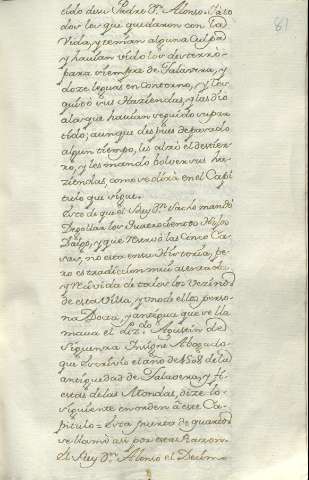 81
tido de su Padre Dn. Alonso. a to
dos los que quedaron con la
Vida, y tenian alguna Culpa
y hauian sido los desterró
para siempre de Talavera, y
doze leguas en contorno, y les
quitó sus Haziendas, y las dió
a los que hauian seguido su par
tido; aunque despues de pasado
algun tiempo, les alzó el destier
ro, y les mando bolver sus ha
ziendas, como se dirà en el Capi
tulo que sigue.
Esto de que el Rey Dn. Sancho mandó
Degollar los Quatrocientos Hijos
Dalgo, y que reservó las Cinco Ca
sas, no està en su Historia, pe
ro es tradicion mui asentada
y recivida de todos los vezinos
de esta Villa, y uno de ellos perso
na Docta, y antigua que se lla
maua el Lizdo. Agustin de
Siguenza Insigne Abogado
que escribio el año de 1508 de la
antiguedad de Talavera, y fi
estas de las Mondas, dize lo
siguiente en orden à este Ca
pitulo: Esta puerta de quartos
se llamó asi por esta Razon.
El Rey Dn. Alonso el Dezimo